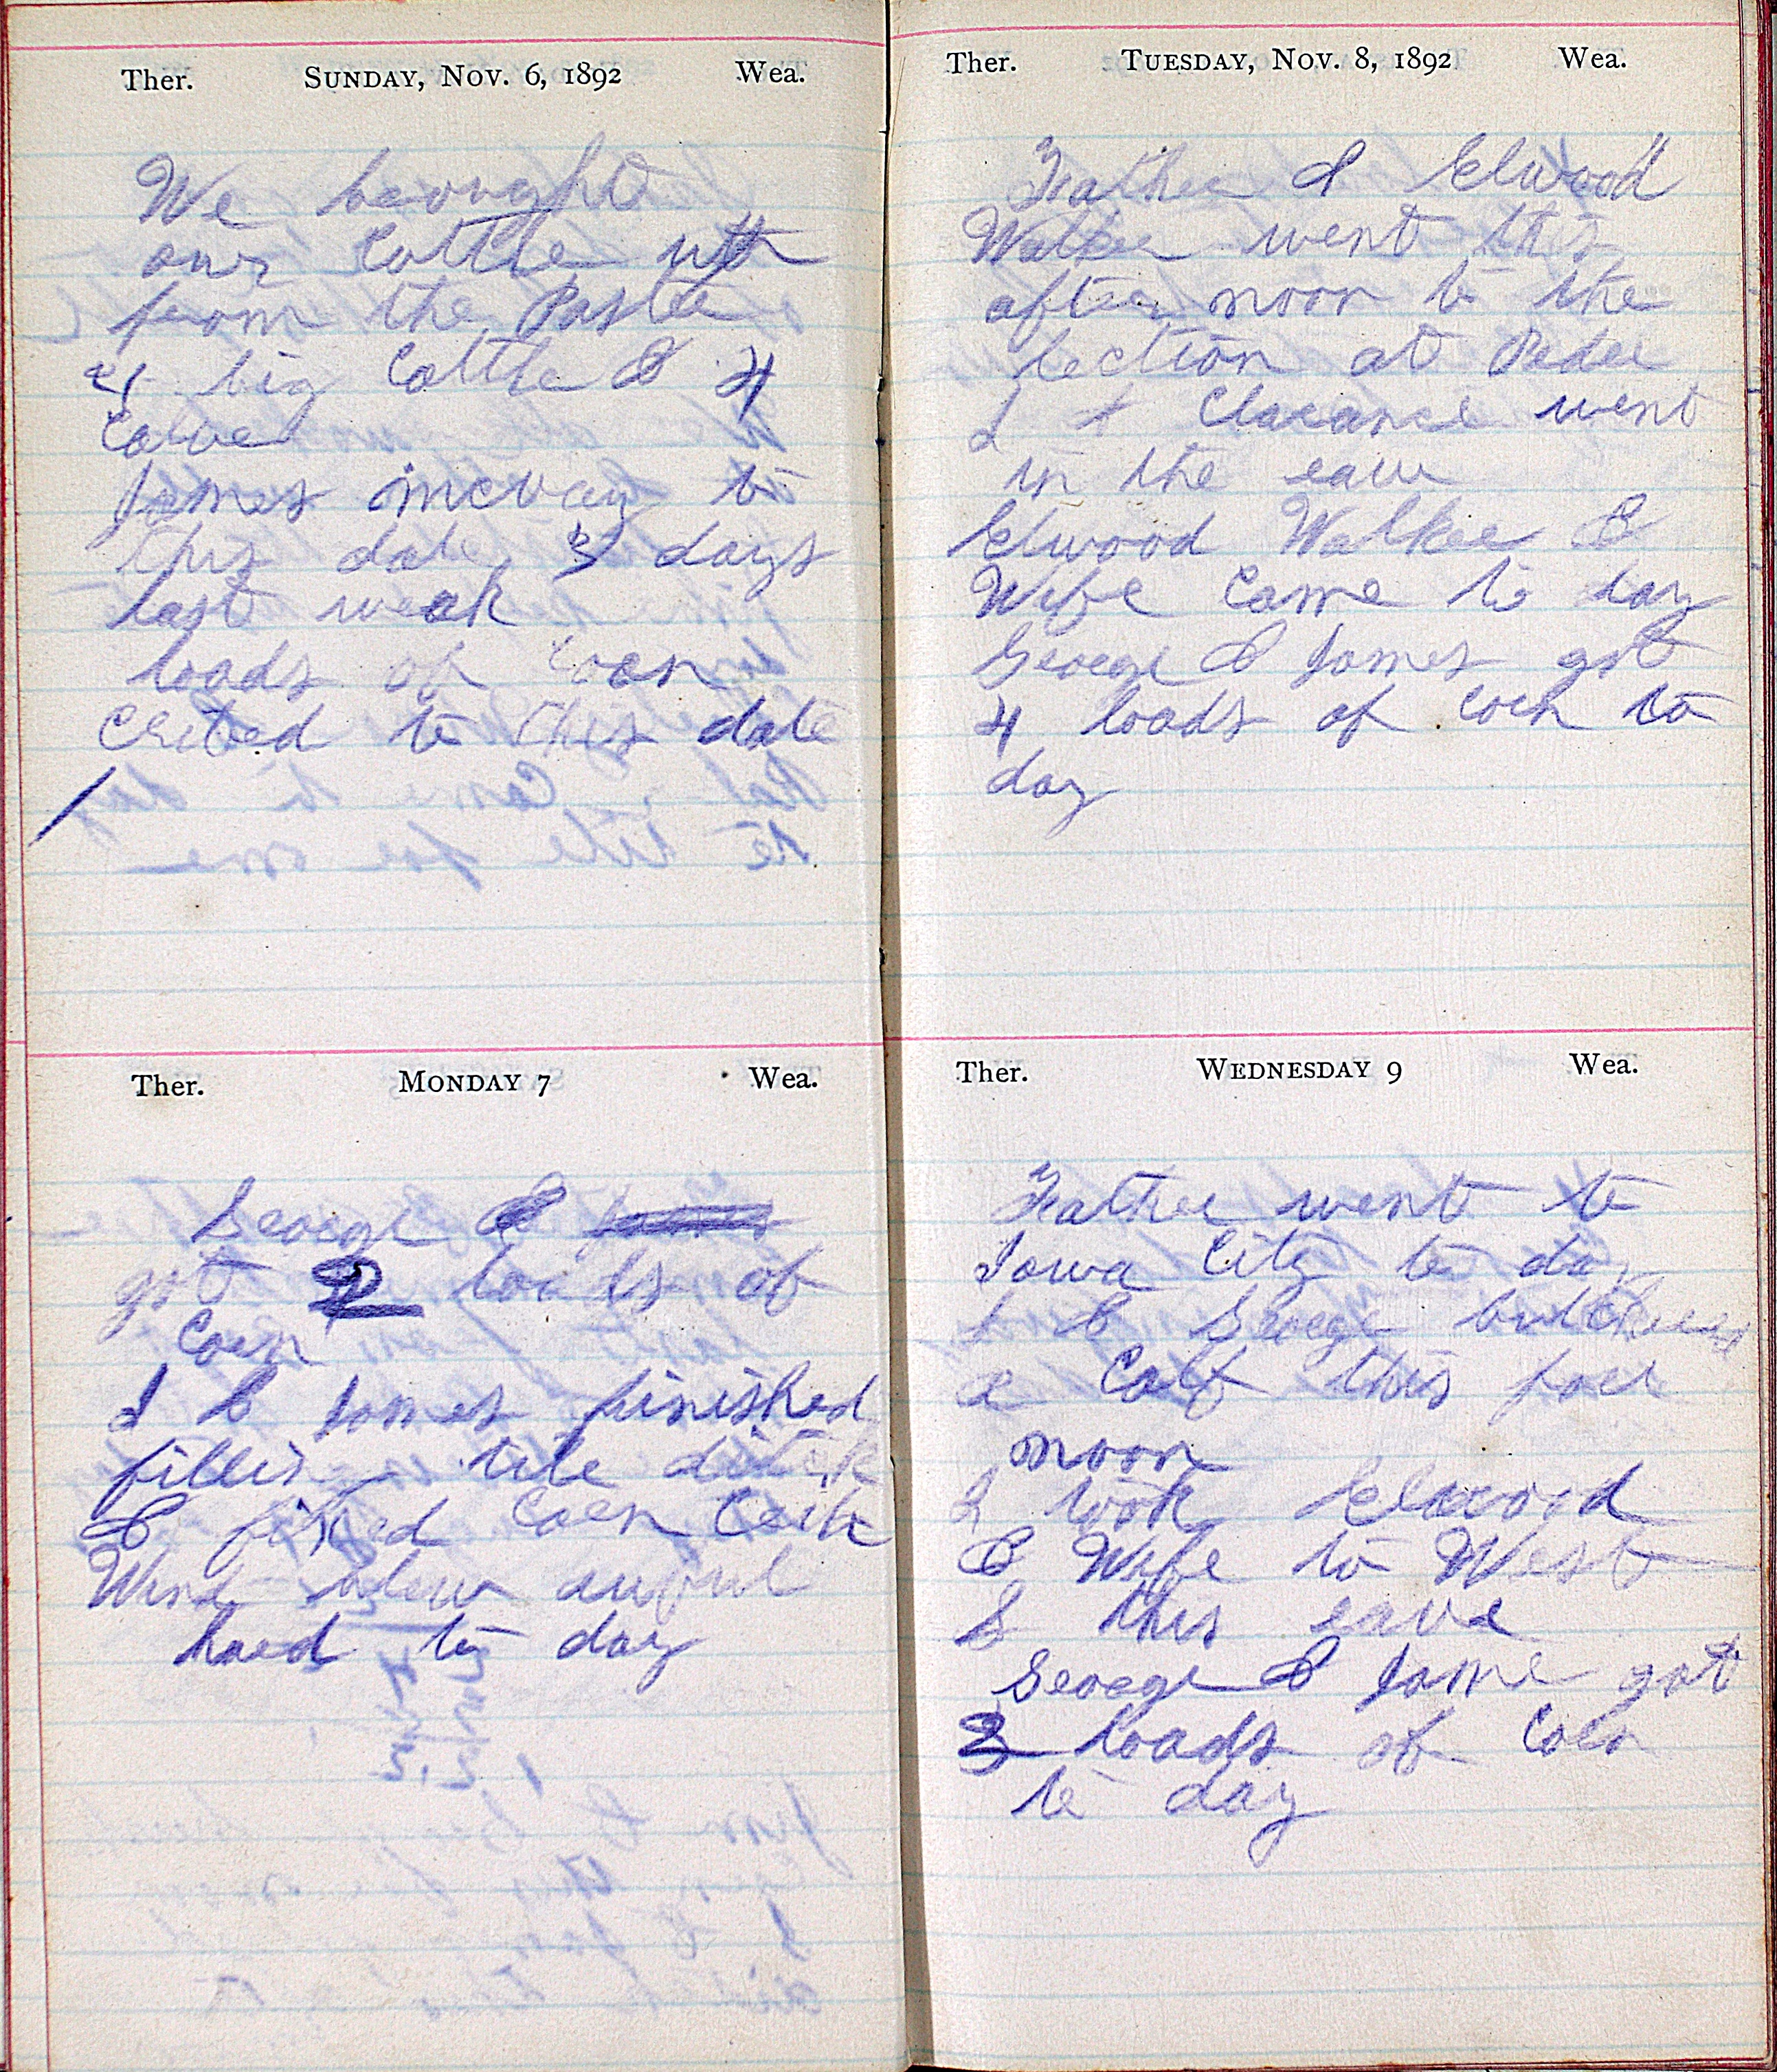 Ther. SUNDAY, NOV. 6, 1892 Wea.
We beought
our Cattle up
from the Paster
4 big Cattle & 4
Calve
James mcvay to
this date 3 days
last weak
loads of coen
Cribed to this date
Ther. MONDAY 7 Wea.
George &
got 2 loads of
Coen
I & James finished
fillin tile ditch
& fixed Coen Crib
Wind blew awful
haed to day
Ther. TUESDAY, NOV. 8, 1892 Wea.
Father & Elwood
Walker went this
after noon to the
lection at Pedee
I + Clarance went
in the eave
Elwood Walker &
Wife Came to day
George & James got
4 loads of Coen to
day
Ther. WEDNESDAY 9 Wea.
Father went to
Iowa City to day
I & George butchered
a Calf this foer
noon
I took Elwood
& Wife to West
B this eave
George & Jame got
3 loads of Coen
to day